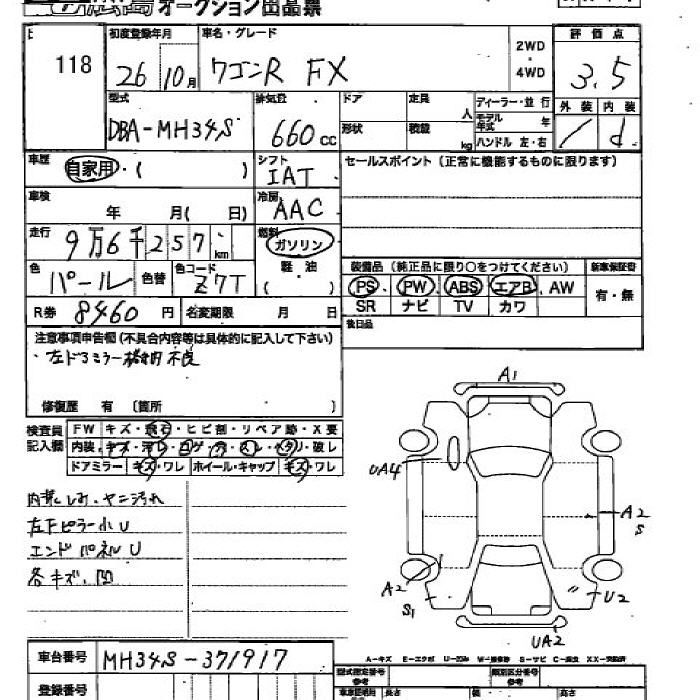 オークション出品票
118
初度登録年月
26 10月
車名・グレード
ワゴンR FX
2WD
4WD
評価点
3.5
型式
DBA-MH34S
排気量
660cc
ドア
定員
人
形状
積載
kg
ディーラー・並行
モデル年式 年
ハンドル 左・右
外装 内装
d
車歴
自家用・( )
シフト
IAT
セールスポイント (正常に機能するものに限ります)
車検
年 月( 日)
冷房
AAC
走行
9万6千257km
燃料
ガソリン
軽・油
( )
色
パール
色替
色コード
Z7T
装備品 (純正品に限り○をつけてください)
新車保証書
PS・PW・ABS・エアB・AW
SR ナビ TV カワ
有・無
R券 8460円
名変期限 月 日
後日品
注意事項申告欄 (不具合内容等は具体的に記入して下さい)
・左ドアミラー格納不良
修復歴 有 〔箇所
検査員記入欄
FW キズ・飛石・ヒビ割・リペア跡・X要
内装 キズ・汚レ・コゲ・穴・スレ・ヘタリ・破レ
ドアミラー キズ・ワレ ホイール・キャップ キズ・ワレ
内装しみ、ヤニ汚れ
左下ピラー小U
エンドパネルU
各キズ、凹
A1
UA4
A2
S
A2
S1
U2
UA2
車台番号 MH34S-371917
登録番号
A-キズ E-エクボ U-凹み W-補修跡 S-サビ C-腐食 XX-交換済
型式指定番号
参考
類別区分番号
参考
長さ 幅 高さ